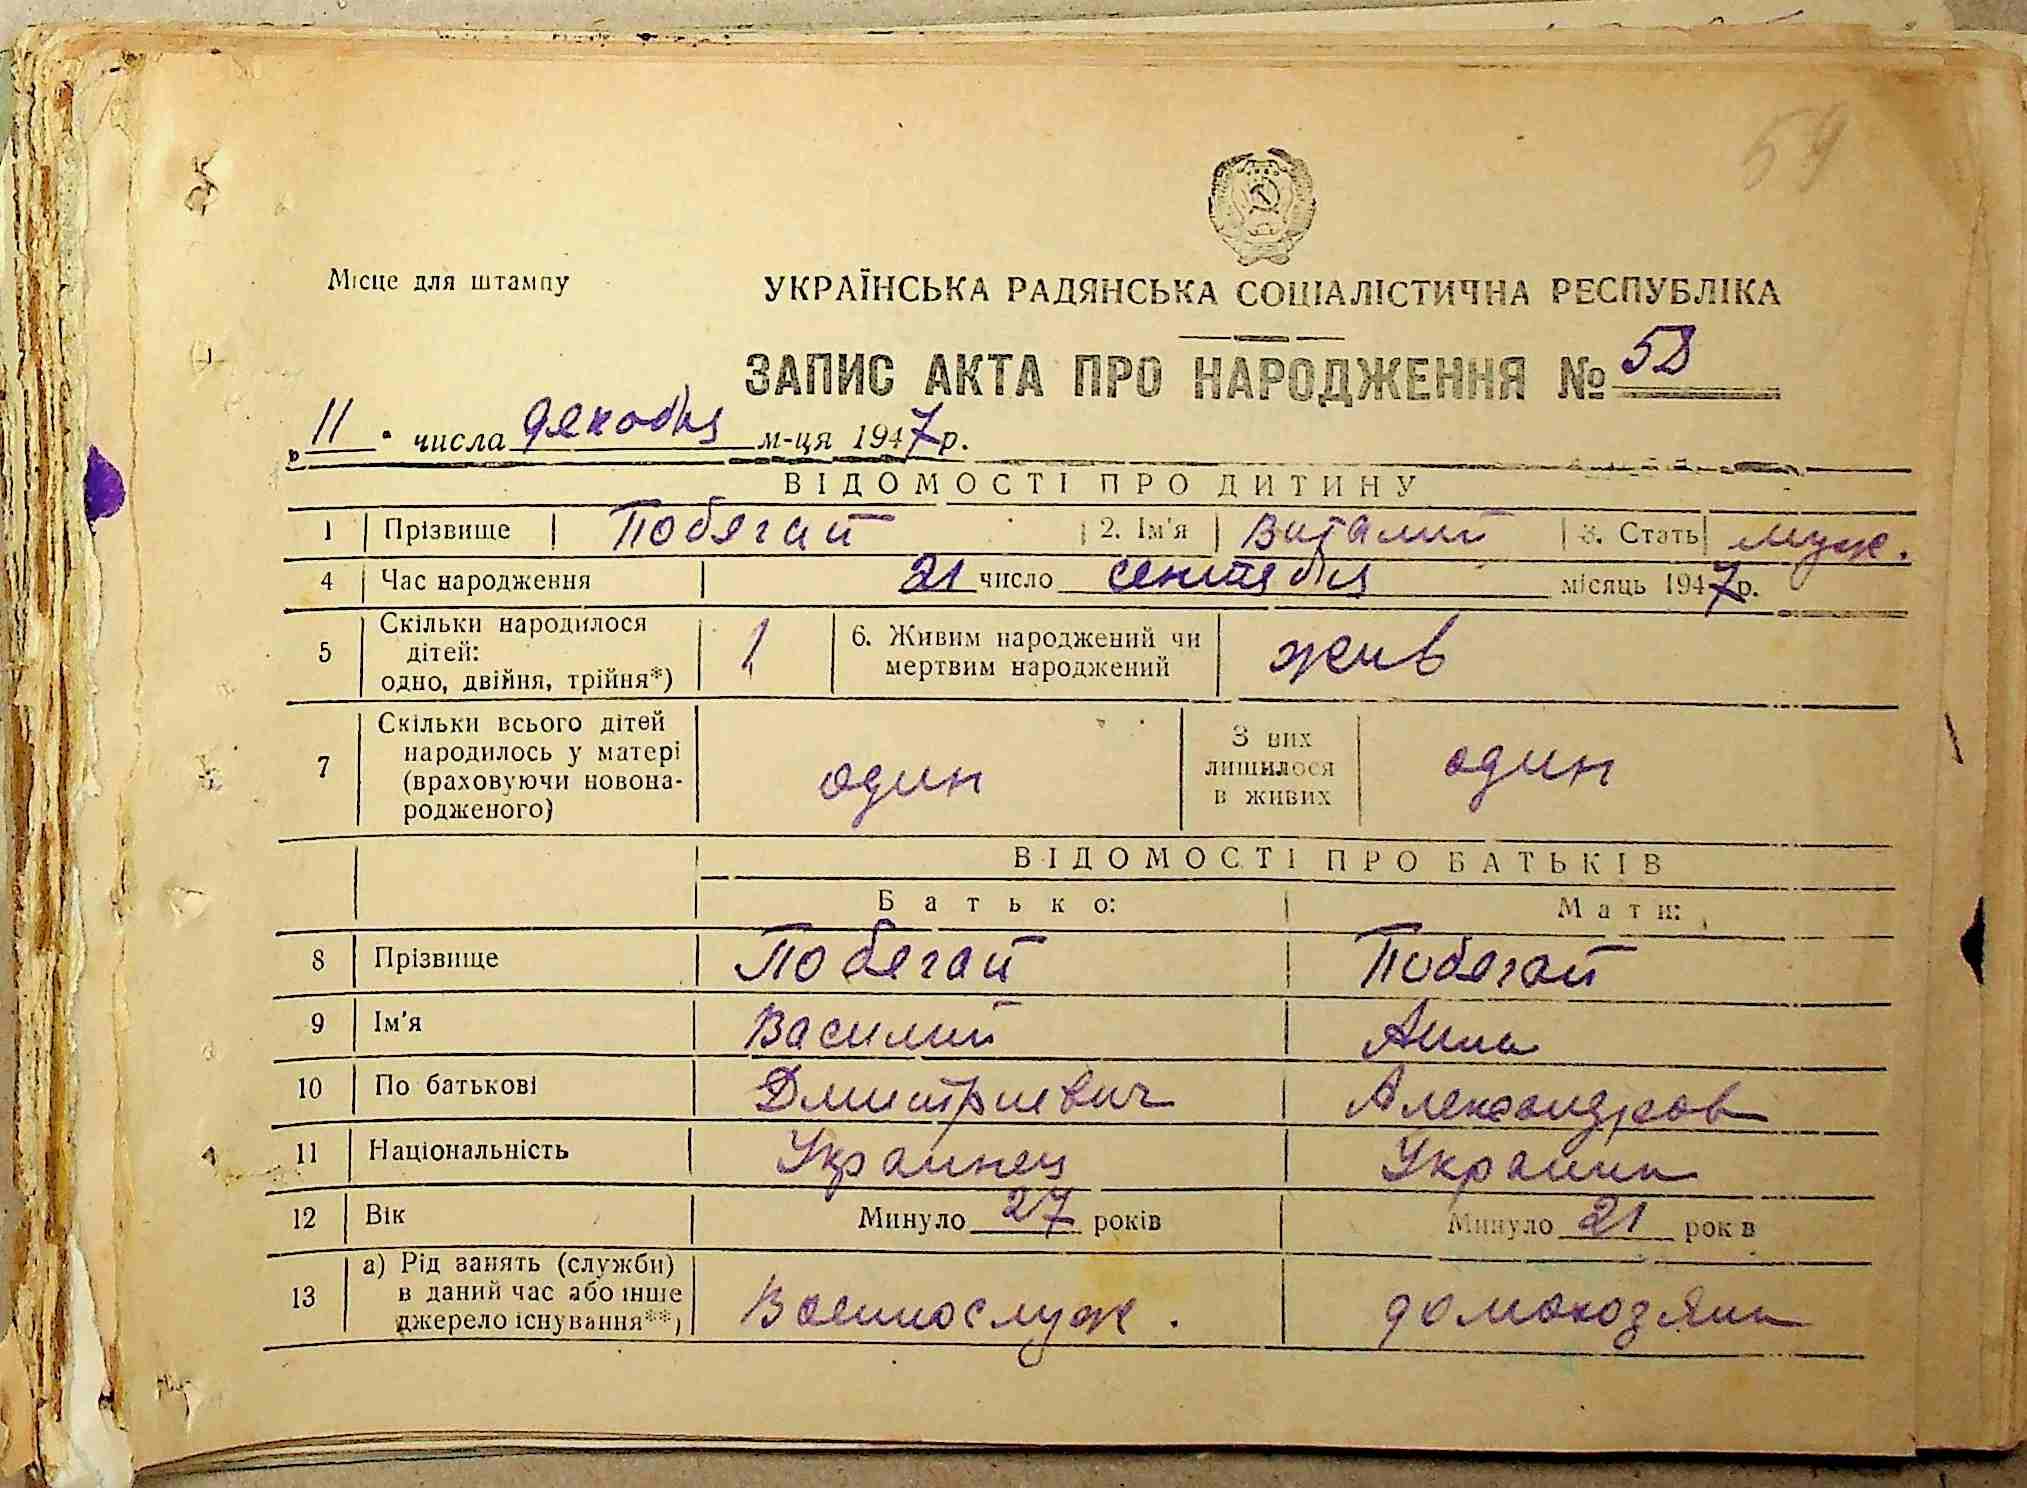 59
Місце для штампу
УКРАЇНСЬКА РАДЯНСЬКА СОЦІАЛІСТИЧНА РЕСПУБЛІКА
ЗАПИС АКТА ПРО НАРОДЖЕННЯ № 58
„ 11 " числа декабря м-ця 1947 р.
ВІДОМОСТІ ПРО ДИТИНУ
1 Прізвище Побягай 2. Ім'я Виталий 3. Стать муж.
4 Час народження 21 число сентября місяць 1947 р.
5 Скільки народилося дітей: одно, двійня, трійня*) 1 6. Живим народжений чи мертвим народжений жив
7 Скільки всього дітей народилось у матері (враховуючи новонародженого) один З них лишилося в живих один
ВІДОМОСТІ ПРО БАТЬКІВ
Батько: Мати:
8 Прізвище Побягай Побягай
9 Ім'я Василий Анна
10 По батькові Дмитриевич Александров
11 Національність Украинец Украин
12 Вік Минуло 27 років Минуло 21 років
13 а) Рід занять (служби) в даний час або інше джерело існування**) Военнослуж. домохозяин